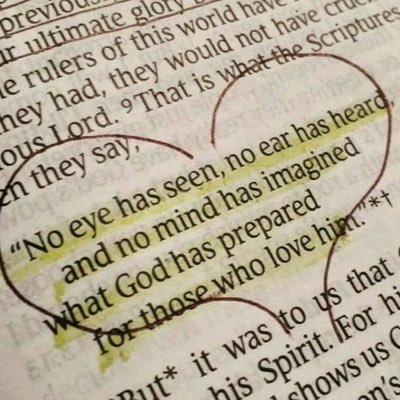 previous
ur ultimate glory
e rulers of this world have
hey had, they would not have cruc
ous Lord. 9That is what the Scriptures
en they say,
“No eye has seen, no ear has heard,
and no mind has imagined
what God has prepared
for those who love him.”*†
But* it was to us that
his Spirit. For hi
shows us